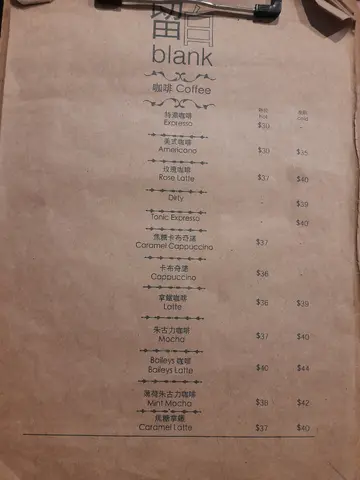 留白
blank
咖啡 Coffee
熱飲 凍飲
Hot Cold
特濃咖啡
Expresso $30
美式咖啡
Americano $30 $35
玫瑰咖啡
Rose Latte $37 $40
Dirty - $39
Tonic Expresso - $40
焦糖卡布奇諾
Caramel Cappuccino $37 -
卡布奇諾
Cappuccino $36 -
拿鐵咖啡
Latte $36 $39
朱古力咖啡
Mocha $37 $40
Baileys 咖啡
Baileys Latte $40 $44
薄荷朱古力咖啡
Mint Mocha $39 $42
焦糖拿鐵
Caramel Latte $37 $40